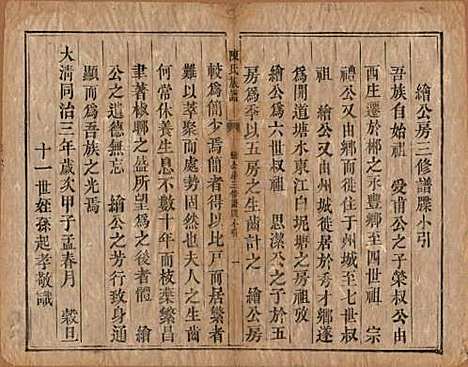 繪公房三修譜牒小引
吾族自始祖 愛甫公之子榮叔公由
西庄遷於郴之永豐鄉至四世祖 宗
禮公又由鄉而徙住于州城至七世叔
祖 繪公又由州城徙居於秀才鄉遂
為開道塘水東江白坭塘之房祖攷
繪公為六世叔祖 思潔公之子於五
房為季以五房之生齒計之 繪公房
陳氏族譜
繪公房三修譜牒小引
一
較為簡少簡者得以比戶而居簡者
難以萃聚而處勢固然也夫人之生齒
何常休養生息不數十年而枝葉繁昌
聿著椒聊之盛所望為之後者體 繪
公之道德無忘 繪公之芳行致身通
顯而為吾族之光焉
大清同治三年歲次甲子孟春月 穀旦
十一世姪孫起孝敬識